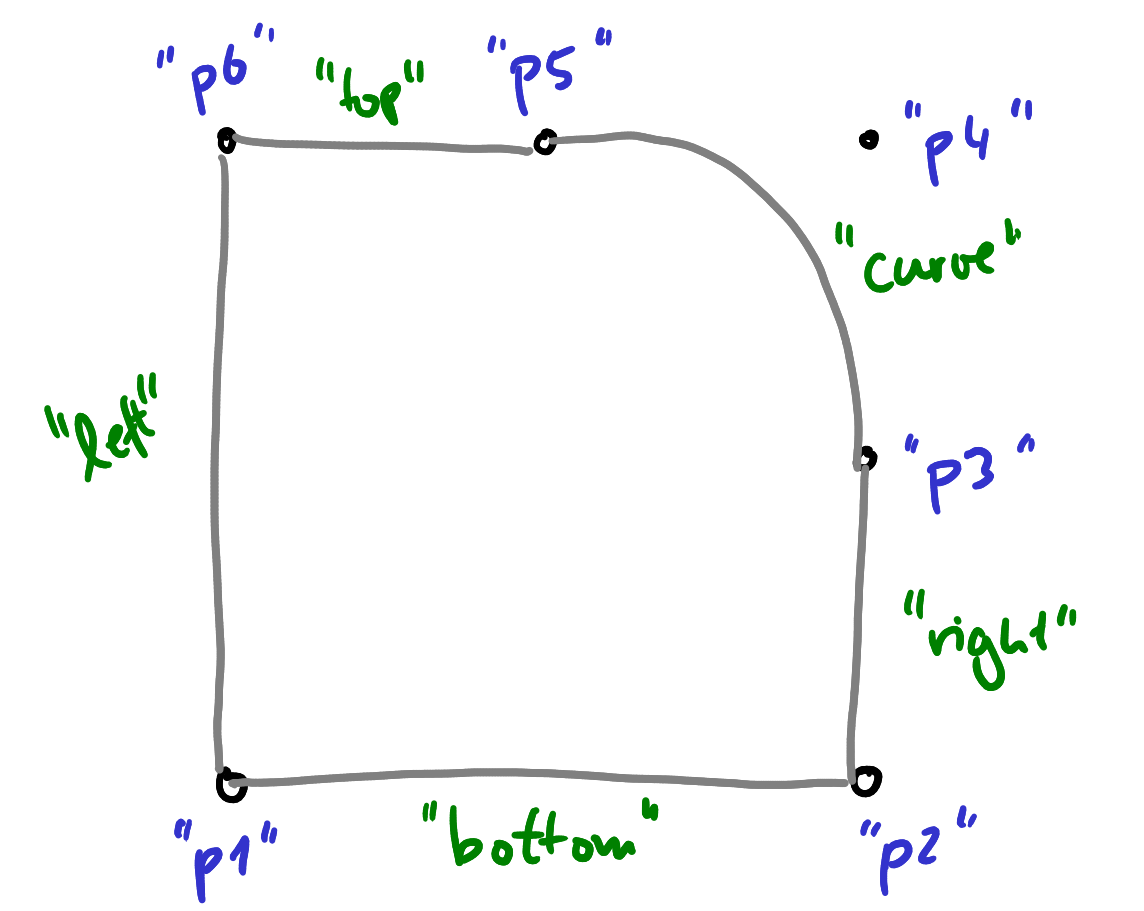 "p6"
"top"
"p5"
"p4"
"curve"
"left"
"p3"
"right"
"p1"
"bottom"
"p2"